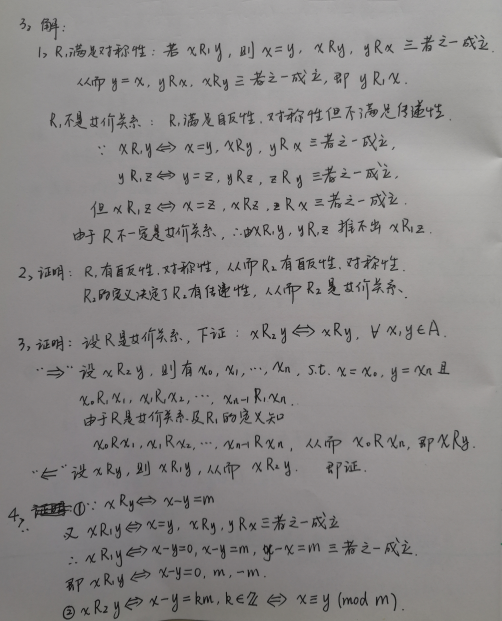 3, 解:
1, R₁满足对称性: 若 xR₁y, 则 x=y, xRy, yRx 三者之一成立,
从而 y=x, yRx, xRy 三者之一成立, 即 yR₁x.
R₁不是等价关系: R₁满足自反性、对称性但不满足传递性.
∵ xR₁y ⟺ x=y, xRy, yRx 三者之一成立,
yR₁z ⟺ y=z, yRz, zRy 三者之一成立,
但 xR₁z ⟺ x=z, xRz, zRx 三者之一成立.
由于 R 不一定是等价关系, ∴由xR₁y, yR₁z 推不出 xR₁z.
2, 证明: R₁有自反性、对称性, 从而R₂有自反性、对称性.
R₂的定义决定了R₂有传递性, 从而 R₂ 是等价关系.
3, 证明: 设R是等价关系, 下证: xR₂y ⟺ xRy, ∀ x,y∈A.
"⇒" 设 xR₂y, 则有 x₀, x₁, ⋯, xₙ, s.t. x=x₀, y=xₙ 且
x₀R₁x₁, x₁R₁x₂, ⋯, xₙ₋₁R₁xₙ.
由于R是等价关系及R₁的定义知
x₀Rx₁, x₁Rx₂, ⋯, xₙ₋₁Rxₙ, 从而 x₀Rxₙ, 即xRy.
"⇐" 设xRy, 则xR₁y, 从而 xR₂y. 即证.
4, ① ∵ xRy ⟺ x-y=m
又 xR₁y ⟺ x=y, xRy, yRx三者之一成立
∴ xR₁y ⟺ x-y=0, x-y=m, y-x=m 三者之一成立.
即 xR₁y ⟺ x-y=0, m, -m.
② xR₂y ⟺ x-y=km, k∈ℤ ⟺ x≡y (mod m).